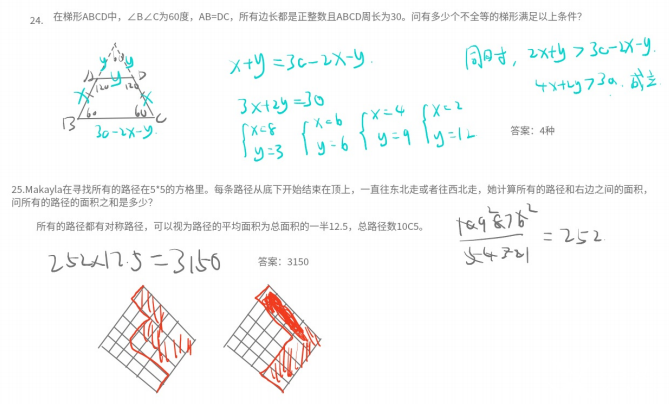 24. 在梯形ABCD中，∠B∠C为60度，AB=DC，所有边长都是正整数且ABCD周长为30。问有多少个不全等的梯形满足以上条件？
60
y y
A y D
120 120
x x
60 60
B C
30-2x-y
x+y=30-2x-y.
3x+2y=30
{x=8 y=3 {x=6 y=6 {x=4 y=9 {x=2 y=12
同时，2x+y>30-2x-y.
4x+2y>30. 成立
答案：4种
25.Makayla在寻找所有的路径在5*5的方格里。每条路径从底下开始结束在顶上，一直往东北走或者往西北走，她计算所有的路径和右边之间的面积，
问所有的路径的面积之和是多少？
所有的路径都有对称路径，可以视为路径的平均面积为总面积的一半12.5，总路径数10C5。
=252
252x12.5=3150
答案：3150